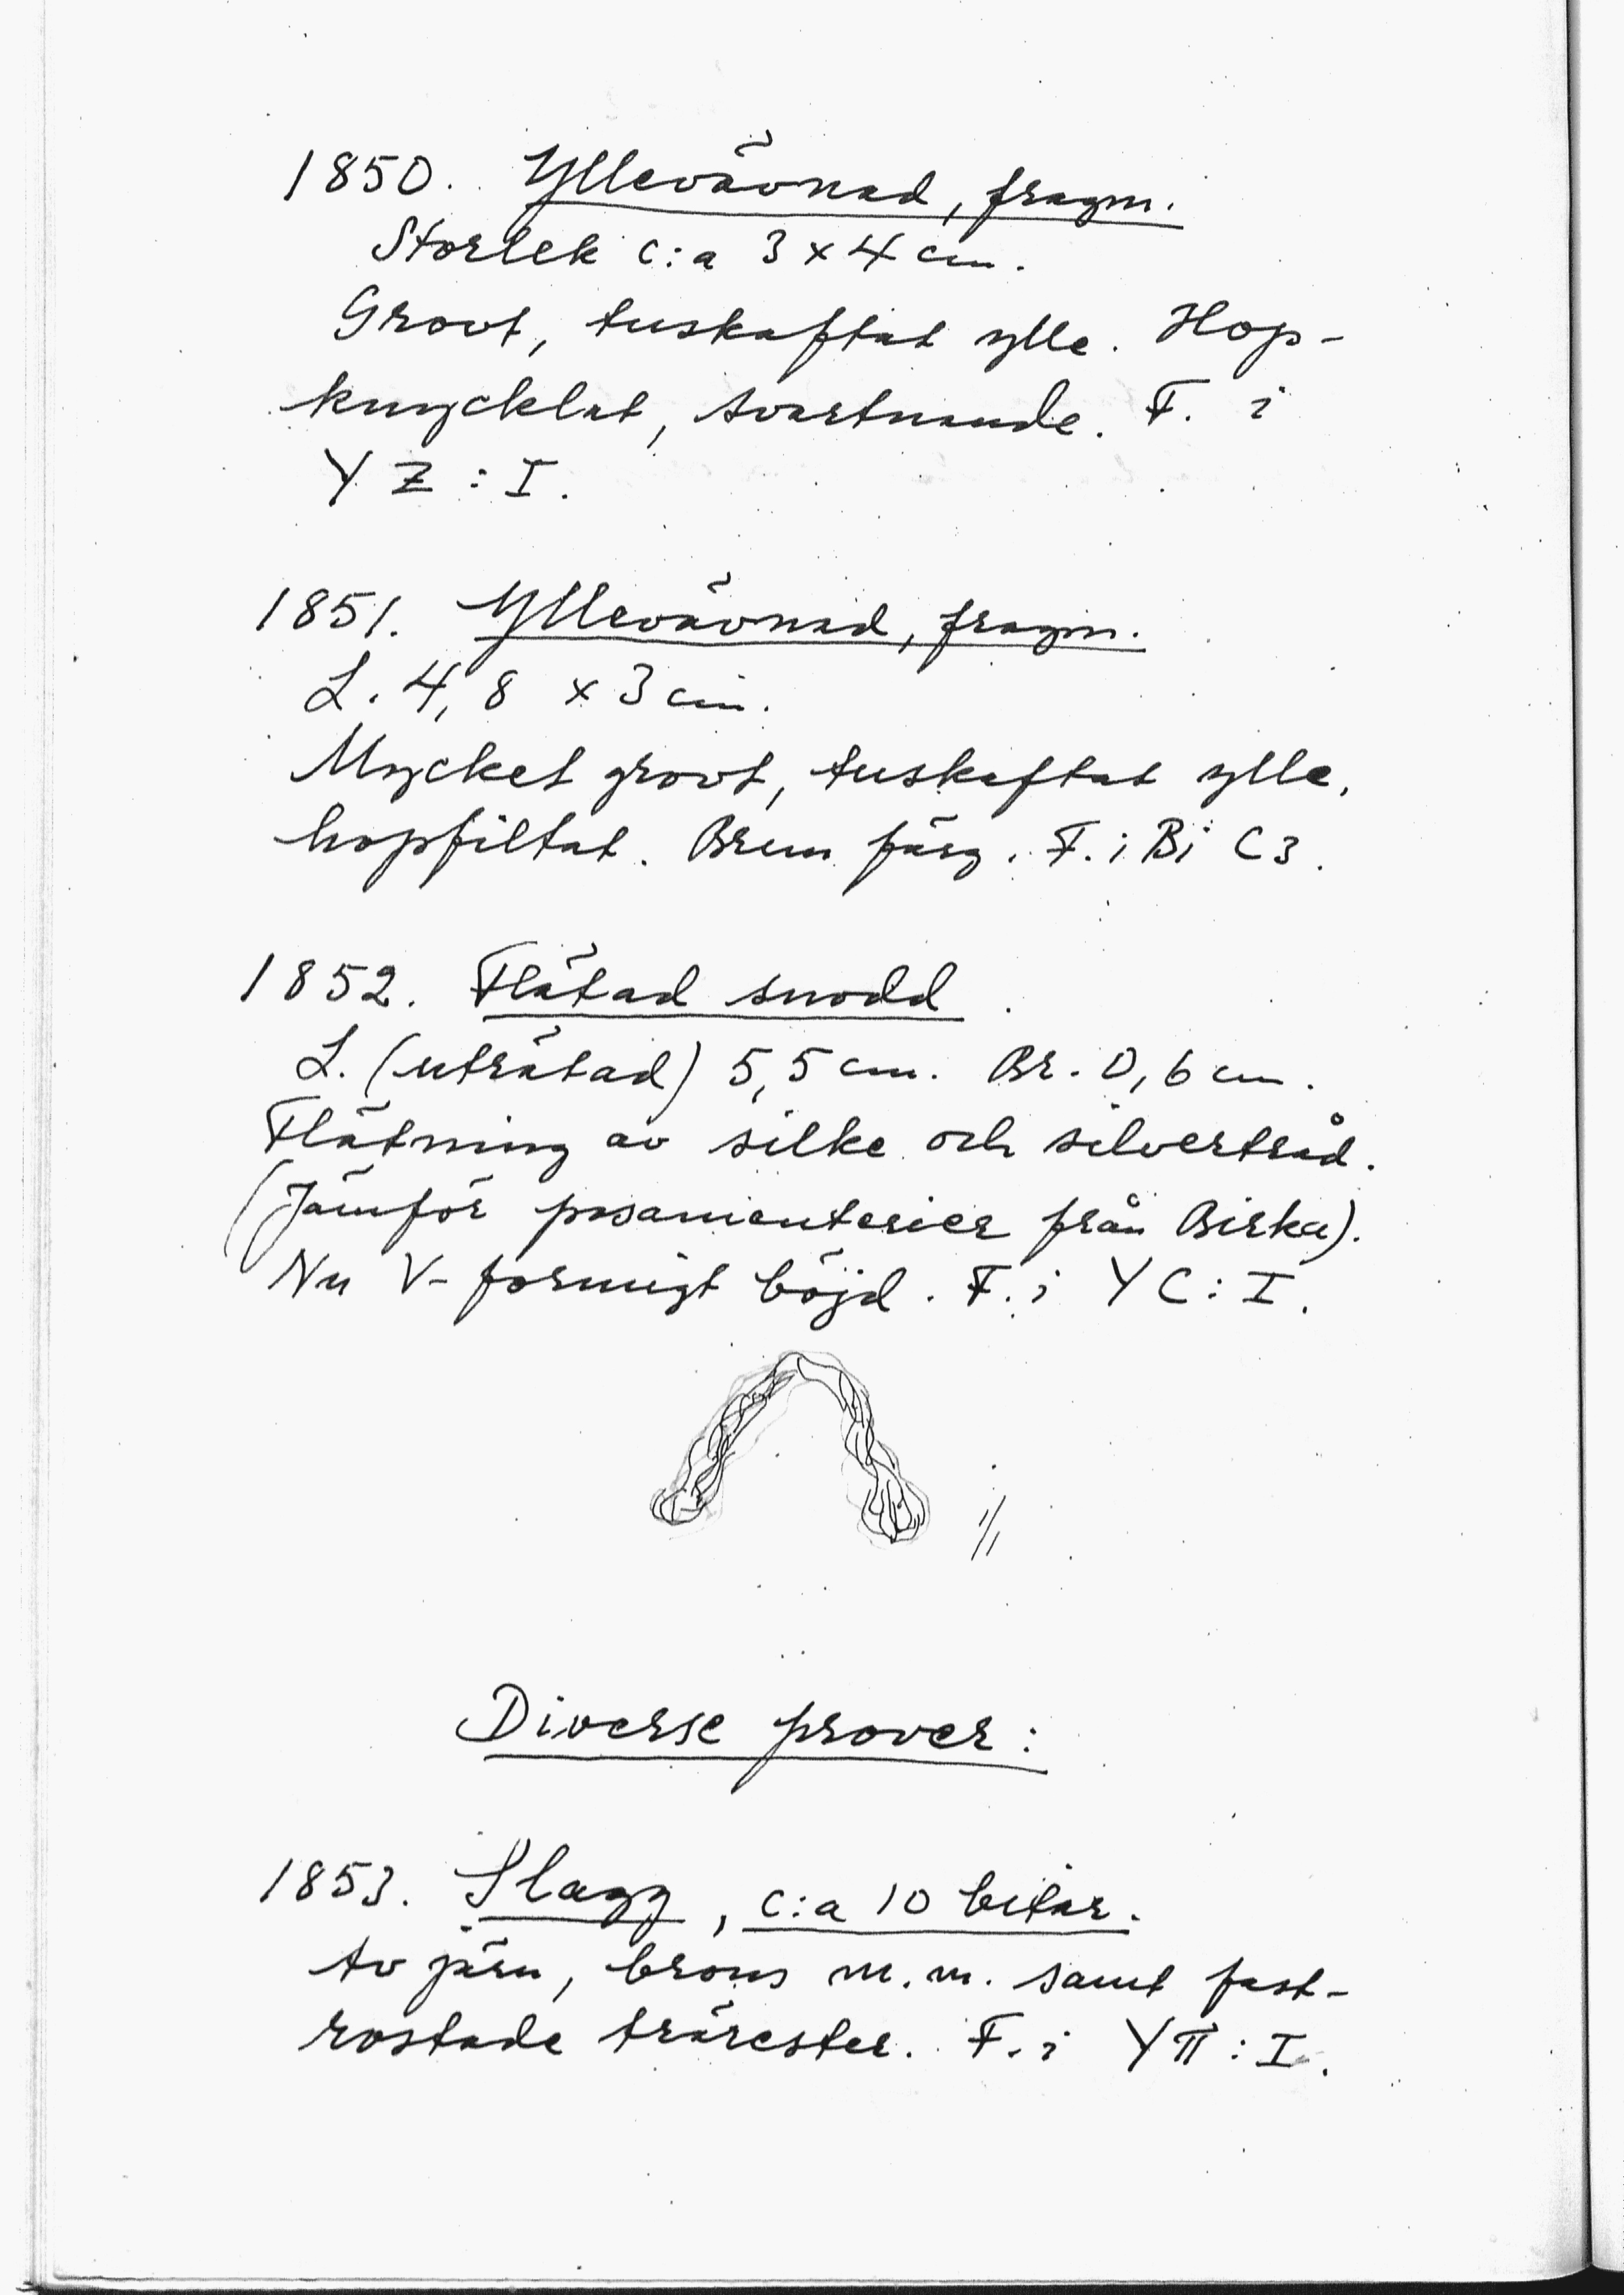 1850. Yllevävnad, fragm.
Storlek c:a 3 x 4 cm.
Grovt, tuskaftat ylle. Hop-
knycklat, svartnande. F. i
Y Z : I.
1851. Yllevävnad, fragm.
L. 4,8 x 3 cm.
Mycket grovt, tuskaftat ylle,
hopfiltat. Brun färg. F. i Bi C3.
1852. Flätad snodd.
L. (uträtad) 5,5 cm. Br. 0,6 cm.
Flätning av silke och silvertråd.
(Jämför posamenterier från Birka).
Nu V-formigt böjd. F. i Y C : I.
1/1
Diverse prover:
1853. Slagg, c:a 10 bitar.
Av järn, brons m.m. samt fast-
rostade trärester. F. i Y π : I.